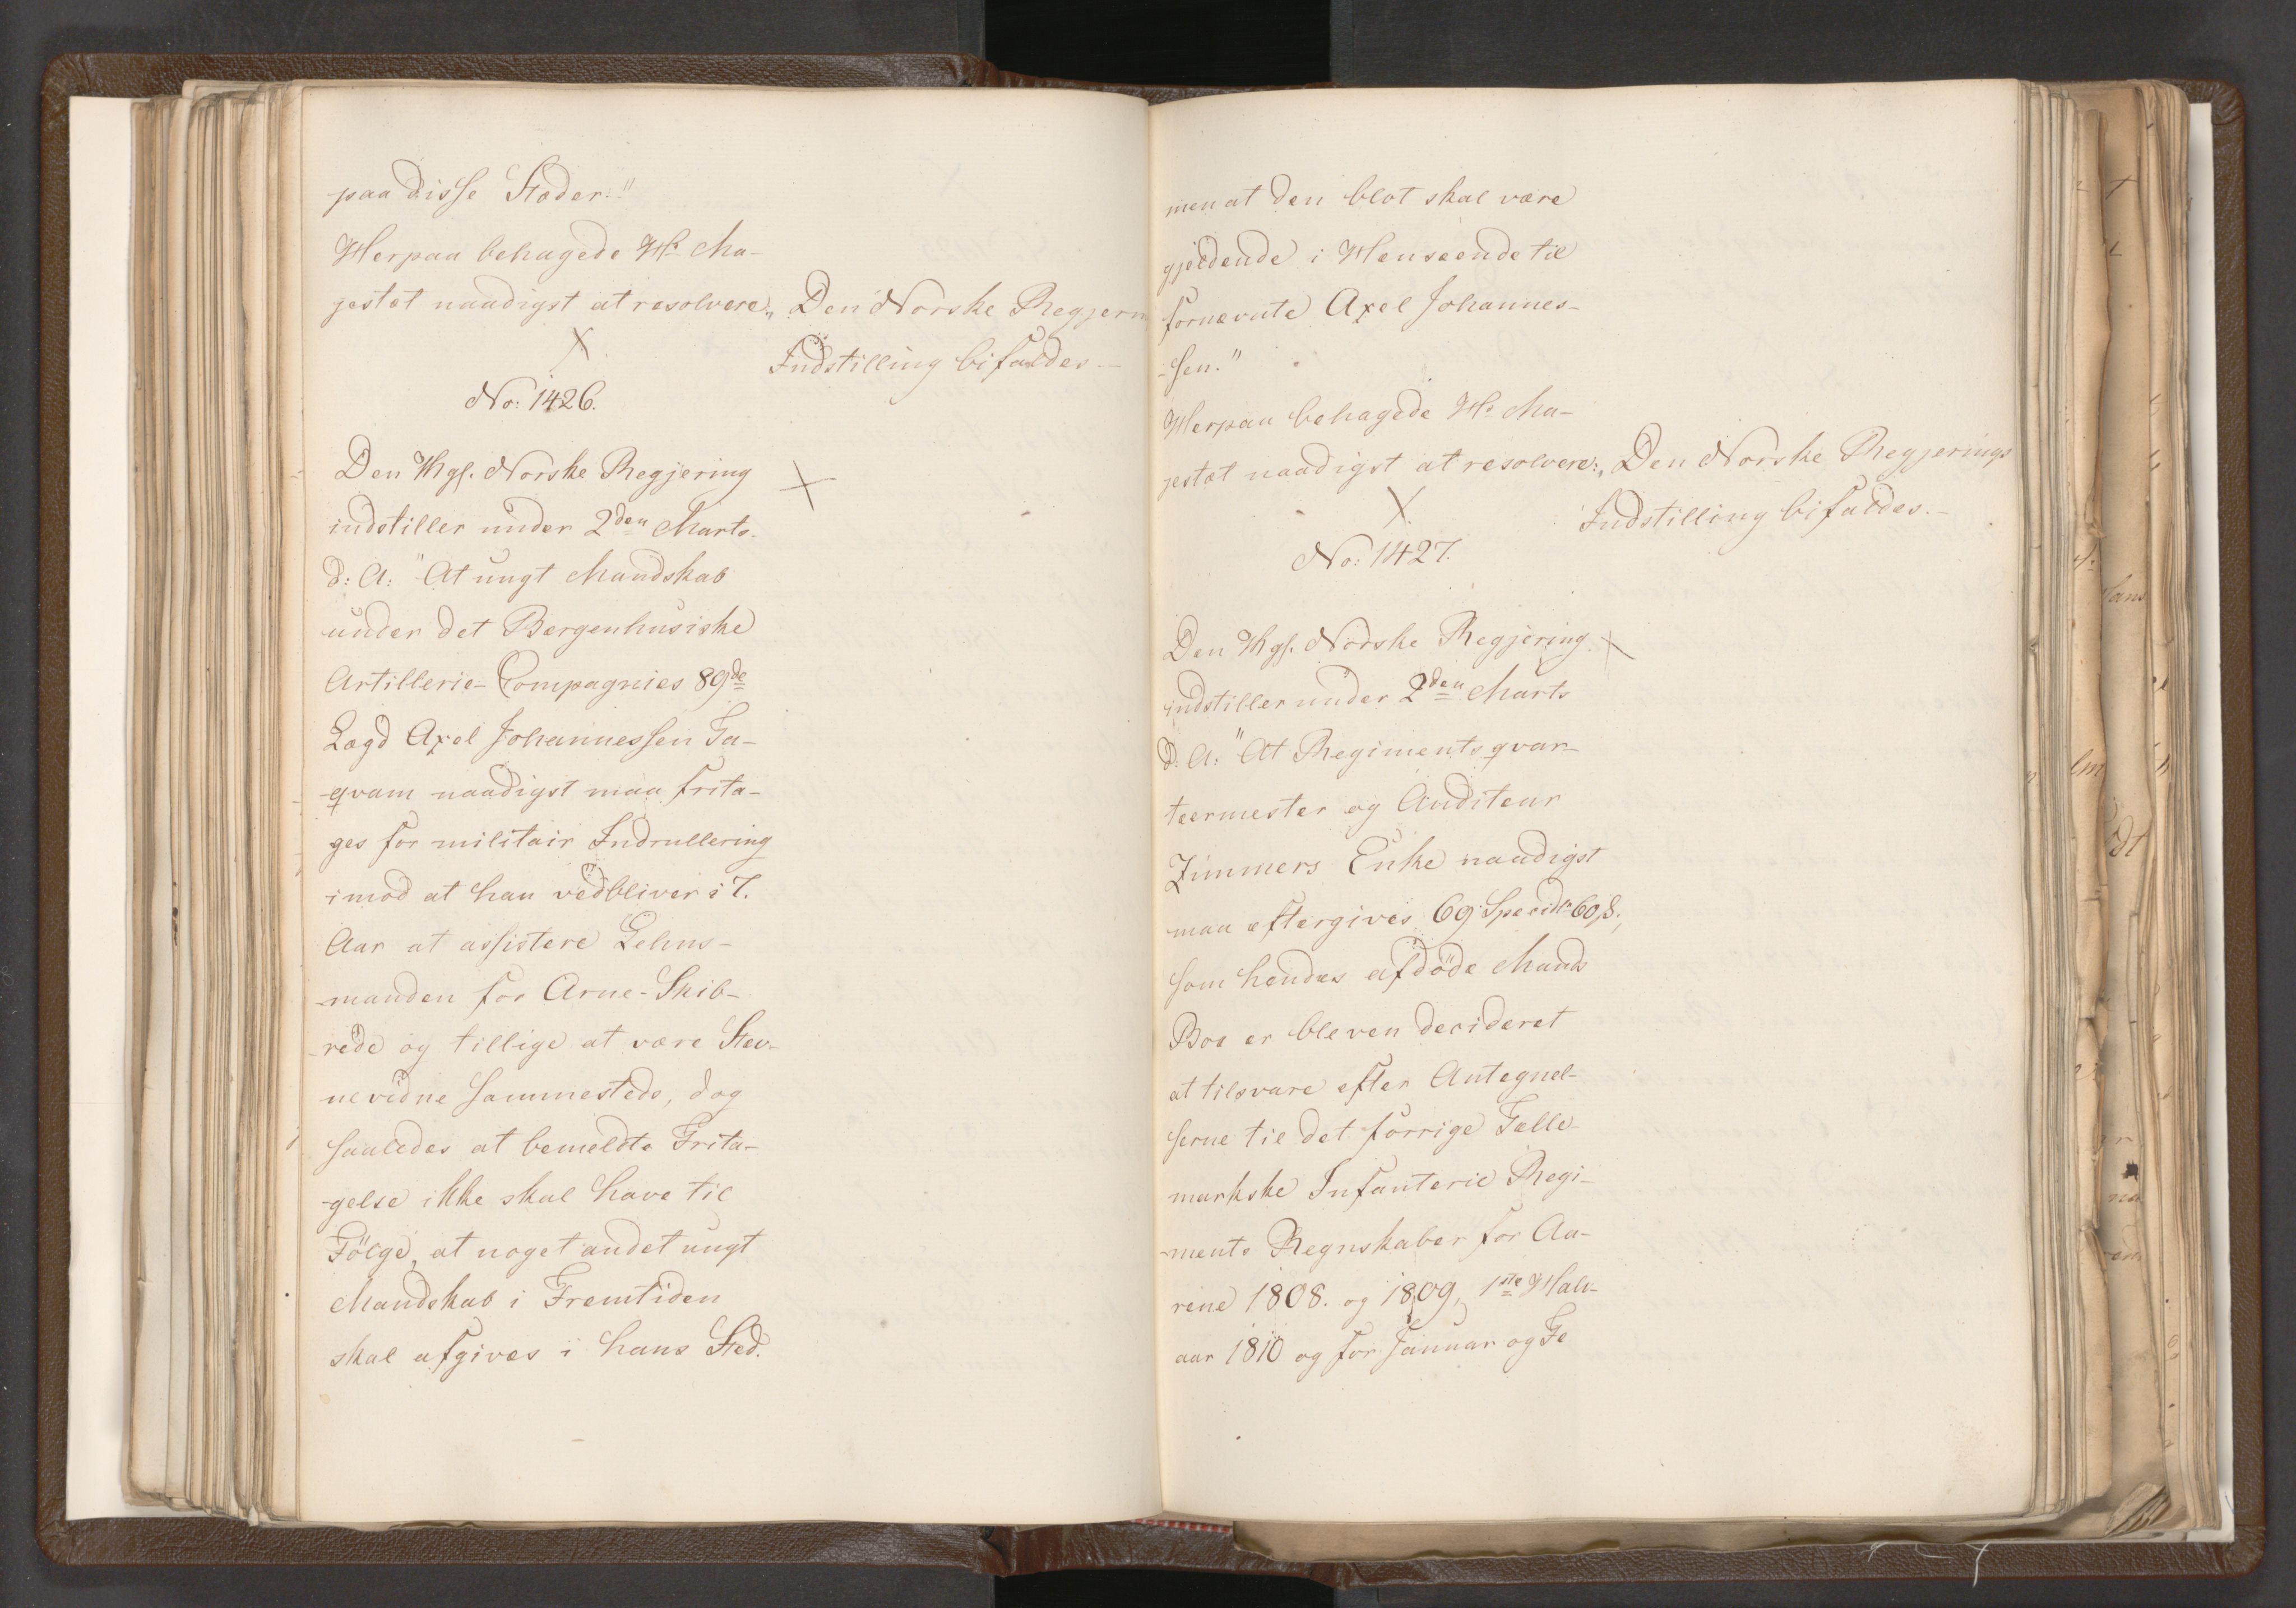 paa disse Stæder."
Herpaa behagede Hs Ma-
jestæt naadigst at resolvere: „Den Norske Regjerin
Indstilling bifaldes.—
No: 1426.
Den Kgl. Norske Regjering
indstiller under 2den Marts
d: A: "At ungt Mandskab
under det Bergenhusiske
Artillerie-Compagnies 89de
Lægd Axel Johannessen Ta-
-qvam naadigst maa frita-
ges for militair Indrullering
imod at han vedbliver i 7.
Aar at assistere Lehns-
-manden for Arne-Skib-
-rede og tillige at være Stev-
nevidne sammesteds, dog
saaledes at bemeldte Frita-
-gelse ikke skal have til
Følge, at noget andet ungt
Mandskab i Fremtiden
skal afgives i hans Sted.
men at den blot skal være
gjeldende i Henseende til
fornævnte Axel Johannes-
-sen."
Herpaa behagede Hs Ma-
jestæt naadigst at resolvere: „Den Norske Regjerings
Indstilling bifaldes.—
No: 1427.
Den Kgl. Nodske Regjering
indstiller under 2den Marts
d: A: "At Regimentsqvar-
teermester og Auditeur
Zimmers Enke naadigst
maa eftergives 69 Specidlr 60 s.,
som hendes afdöde Mands
Boe er bleven decideret
at tilsvare efter Antegnel-
serne til det forrige Telle-
markske Infanterie Regi-
-ments Regnskaber for Aa-
rene 1808. og 1809, 1ste Halv-
aar 1810 og for Januar og Fe